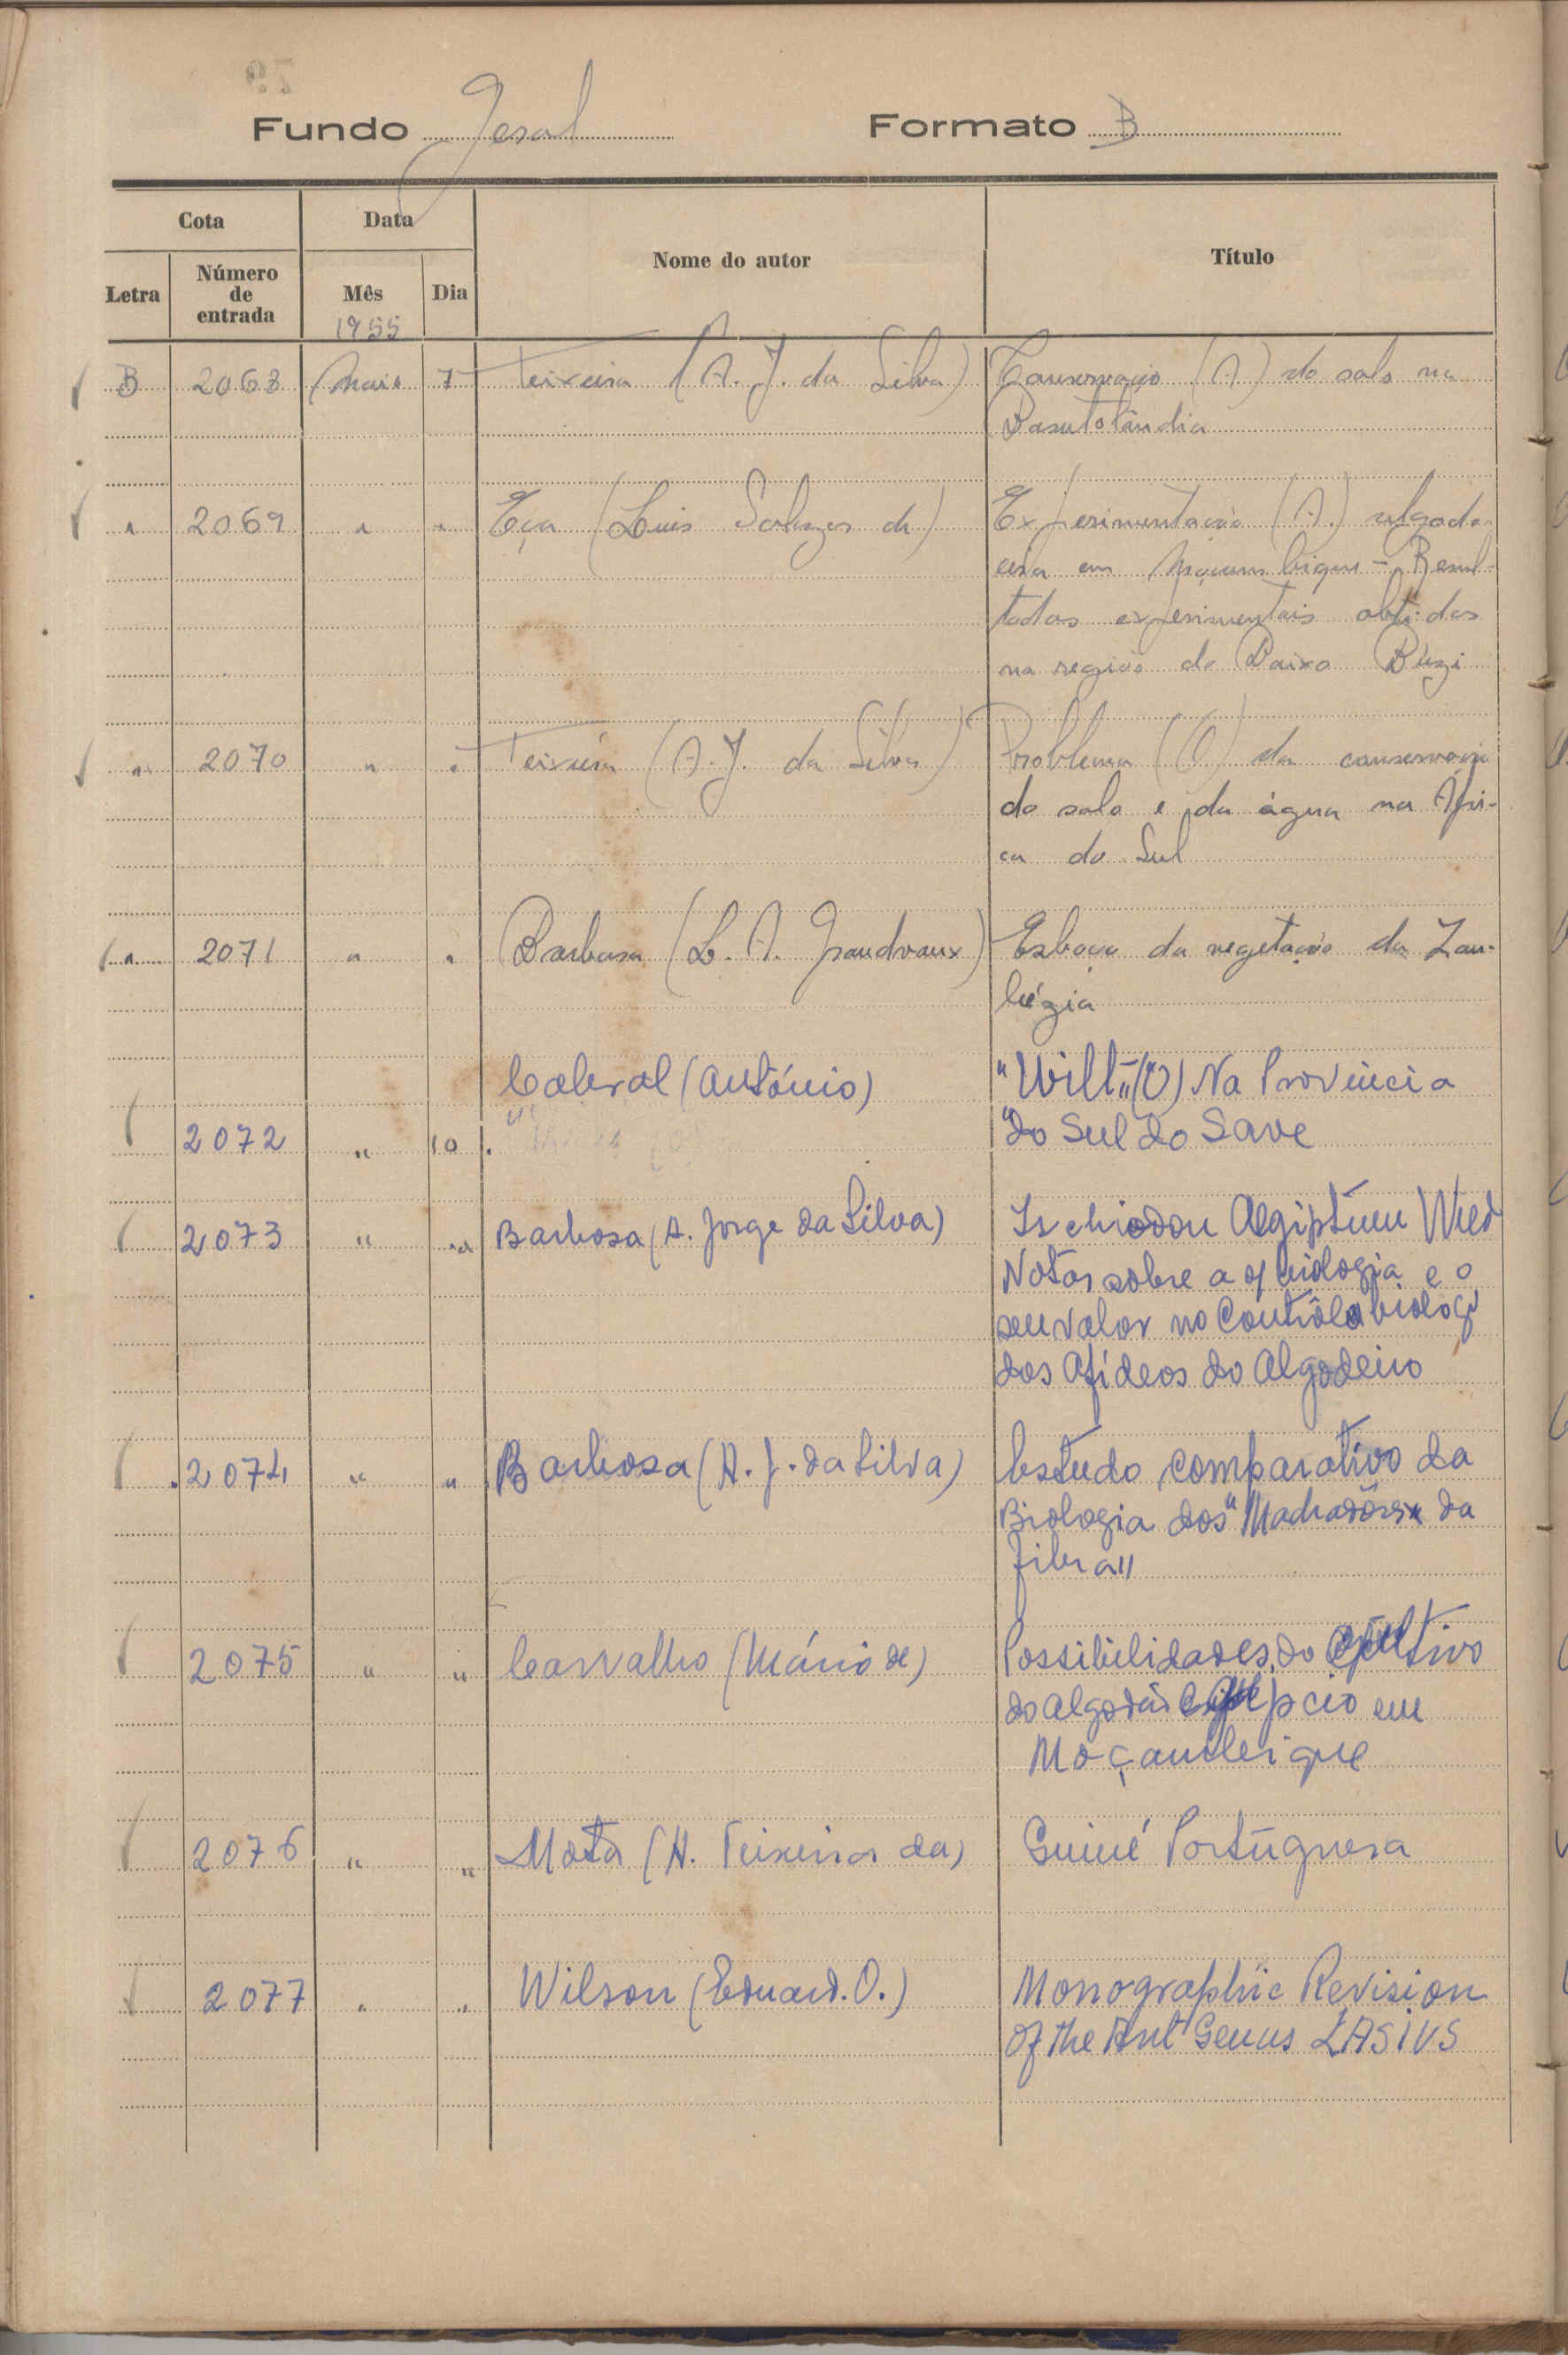 Fundo Geral Formato B
Cota Data Nome do autor Título
Letra Número de entrada Mês Dia
1955
B 2068 Maio 7 Teixeira (A. J. da Silva) Conservação (A) do solo na
Basutolândia
" 2069 " " Eça (Luis Salazar de) Experimentação (A) algodo-
eira em Moçambique - Resul-
tados experimentais obtidos
na região do Baixo Búzi
" 2070 " " Teixeira (A. J. da Silva) Problema (O) da conservação
do solo e da água na Áfri-
ca do Sul
" 2071 " " Barbosa (L. A. Grandvaux) Esboço da vegetação da Zam-
bézia
Cabral (António) "Wilt" (O) Na Provincia
2072 " 10 "do Sul do Save
2073 " " Barbosa (A. Jorge da Silva) Ischiodon Aegiptium Wied
Notas sobre a biologia e o
seu valor no Contrôlo biológ
dos Afídeos do Algodeiro
2074 " " Barbosa (A. J. da Silva) Estudo comparativo da
Biologia dos "Machadôres da
fibra"
2075 " " Carvalho (Mário de) Possibilidades do Cultivo
do Algodão Egipcio em
Moçambique
2076 " " Mota (A. Teixeira da) Guiné Portuguesa
2077 " " Wilson (Eduard. O.) Monographic Revision
Of the Ant Genus LASIUS